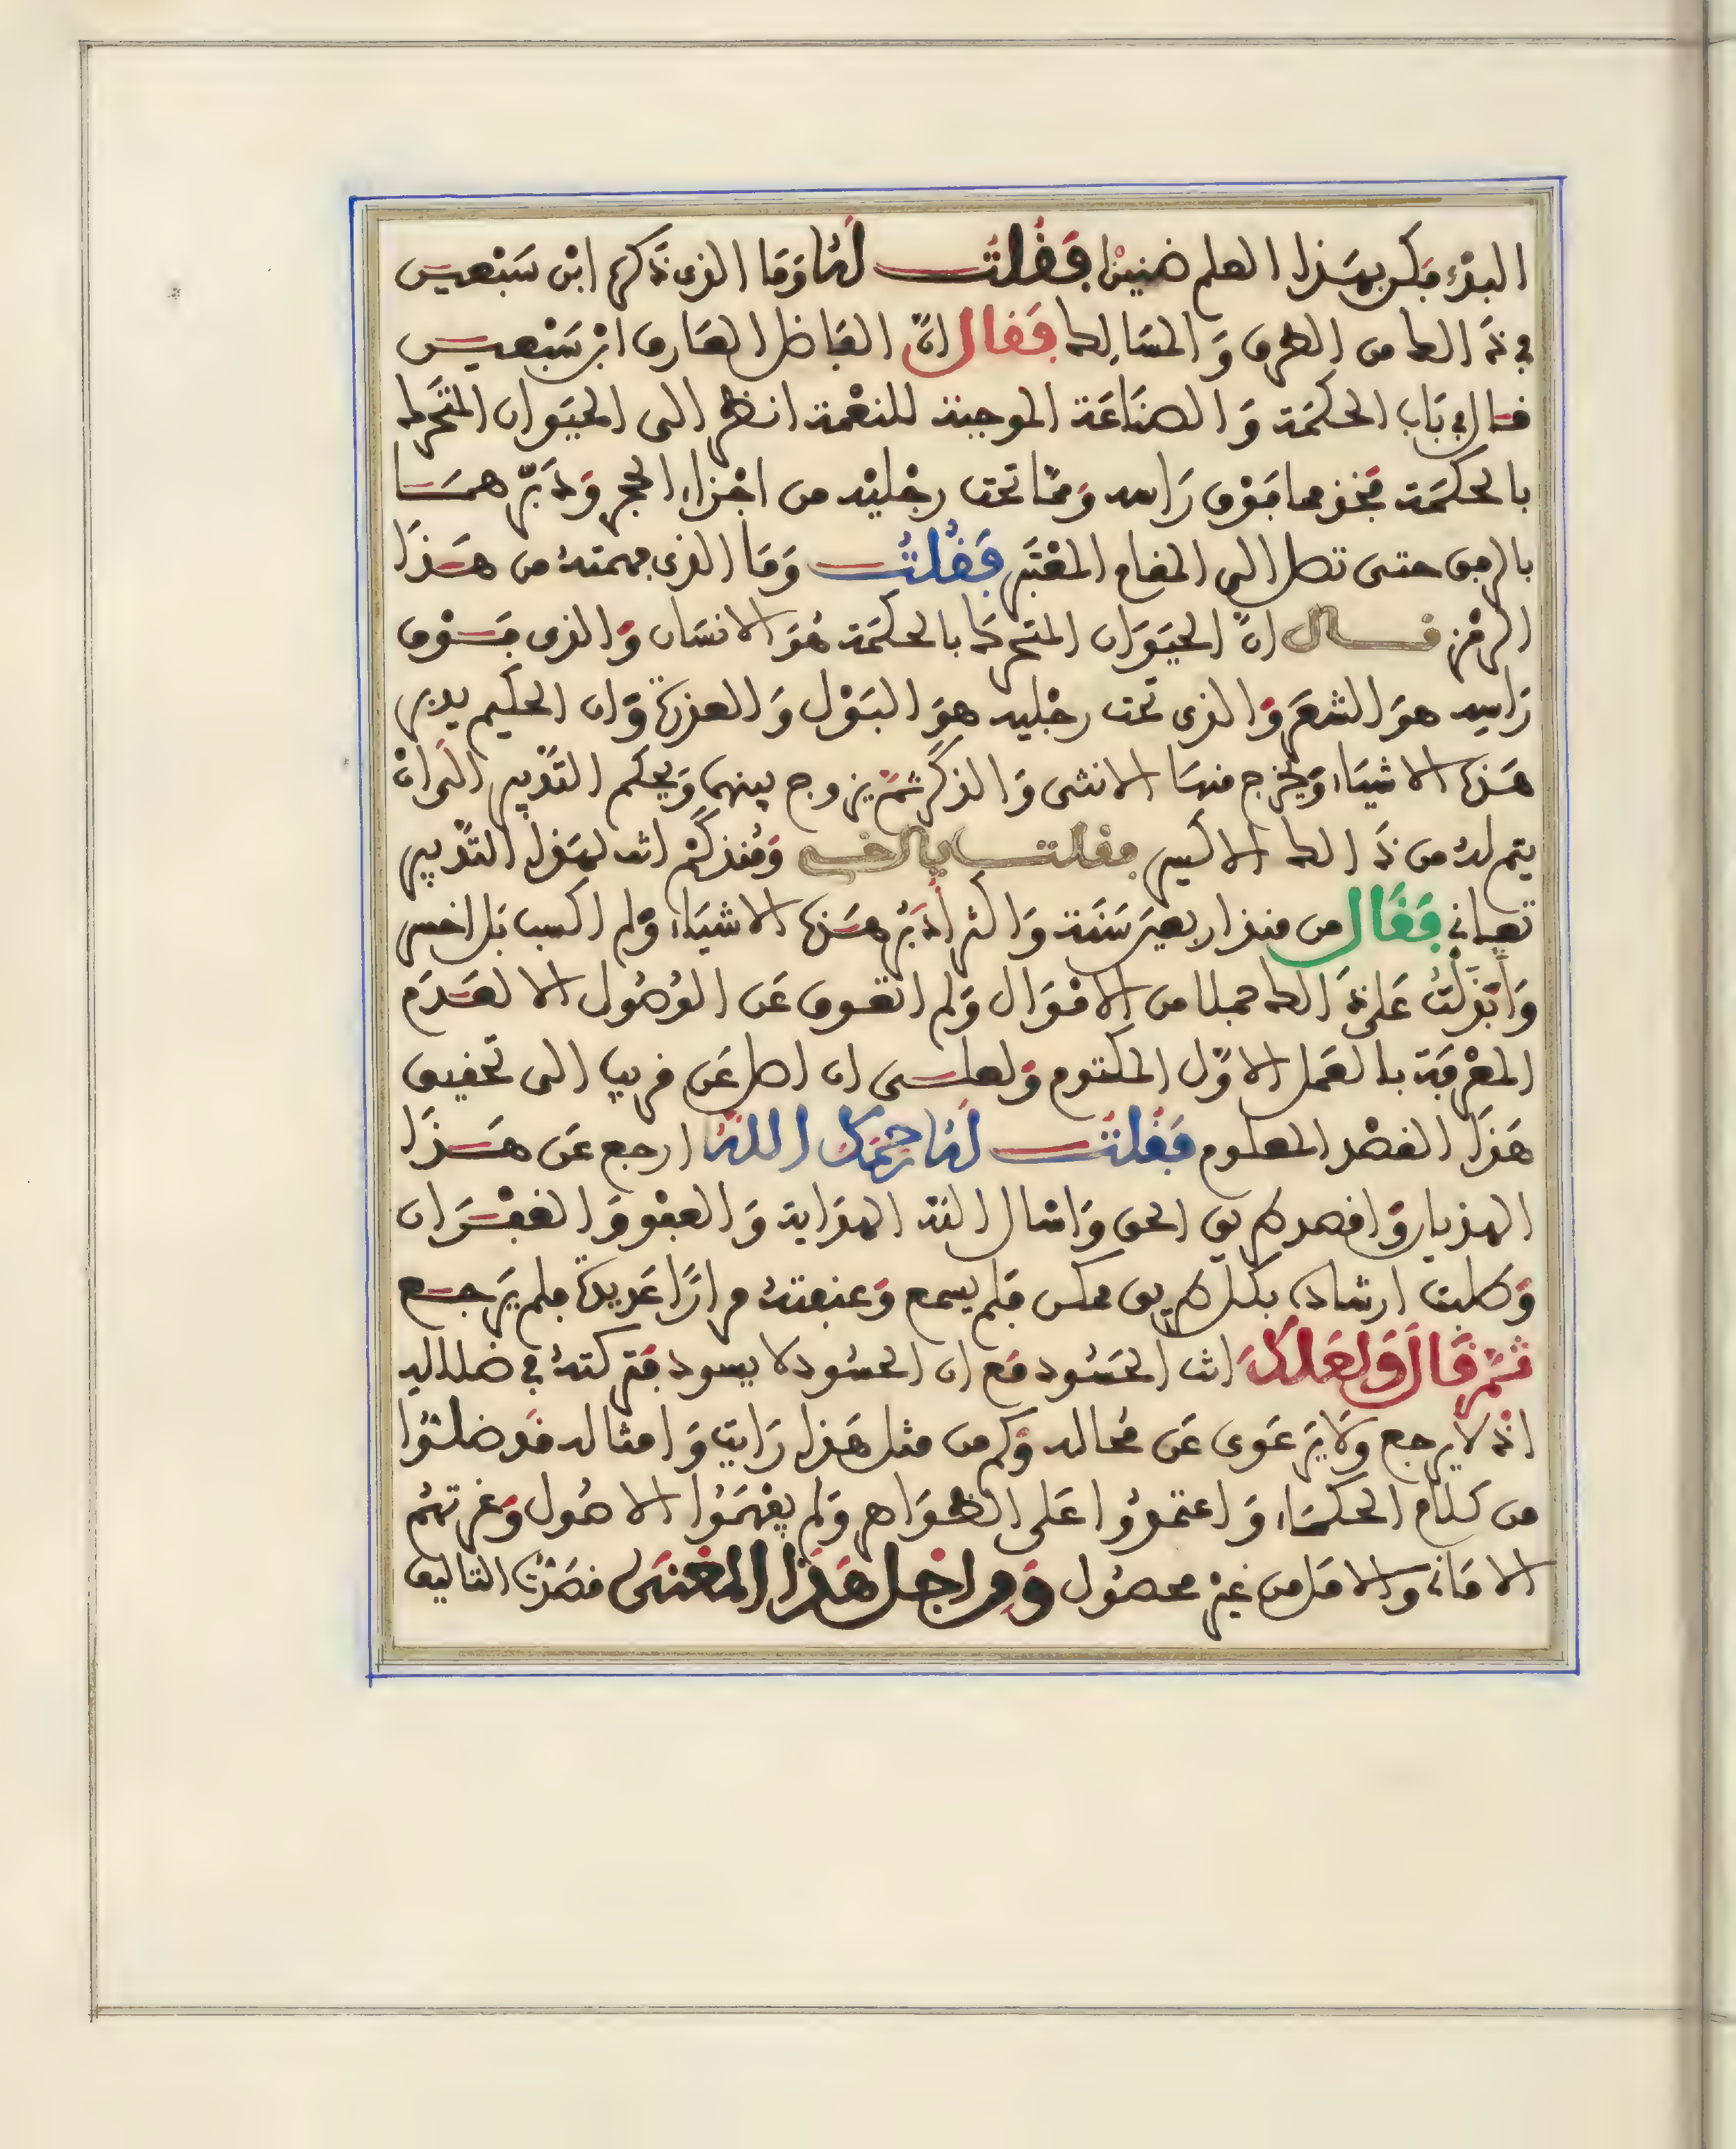 البدْء فكن بهَذا العلم ضنينا فَقُلت لَهُ وَمَا الذى ذَكره ابْن سَبْعيـن
في ذَالك من الطرق وَالمسَالك فَقَال انّ الفَاضل العَارف ابْن سَبْعيـن
قـال في بَاب الحكمَة وَالصنَاعَة الموجبة للنعْمة انظر الى الحيَوان المتحَرك
بالحكمَة فخذ مما فَوْق رَاسه وَممّا تحت رجْليْه من اجْزاء الحجر وَدَبّرهمـَا
بالرفق حتى تصل الى المقام المعْتبَر فَقُلْتُ وَمَا الذى فهمته من هَـذَا
الرمْز قـال انّ الحيَوَان المتحرك بالحكمَة هُوَ الانسَان وَالذى فـَوْق
رَاسه هوَ الشعَر وَالذى تحت رجْليه هوَ البَوْل وَالعذرة وَان الحكيم يدبر
هَـذه الاشيَاء وَيخْرج منهَا الانثى وَالذكَر ثمّ يزوج بينهما وَيحكم التَّدْبير الى انْ
يتم لهُ من ذَالك الاكسير فقلت يالخـى وَمُنذ كَمْ انت لهَذا التَّدْبير
تعـانى فَقَال من منذ اربعين سَنَة وَاكثر أدَبّر هـَذه الاشيَاء وَلم اكسب بَل اخسر
وَابْذلْتُ عَلى ذَالك جملا من الامْوَال وَلم اتعـوق عَن الوُصُول الا لعَـدَم
المعْرفَة بالعَمل الاوّل المكتوم وَلعلـى ان اصل عَن قريب الى تحقيق
هَذَا القصْد المعلـوم فَقُلْتـ لَهُ رَحمَكَ اللهُ ارجع عَن هَـذَا
الهذيان وَاقصد طريق الحق وَاسْال اللهَ الهدَاية وَالعفْو وَالغفْـرَان
وَطلبت ارشاده بكل طريق ممكن فَلم يسمع وَعنفتهُ مرارًا عَديدة فلم يَرجـع
ثمّ قَالَ وَلعَلكَ انت الحَسُود مَع ان الحسُود لا يسود فتركتهُ في ضلاله
اذْ لا يرجع وَلا يَرعَوى عَن مُحَاله وَكم من مثل هَذا رَايت وَامثاله قَد ضلـُوا
من كلَام الحكمـَاء وَاعتمدُوا عَلى الظوَاهر وَلم يفهمُوا الاصُول وَغرتهُم
الامَانى وَالامَل من غيْر محصُول وَمن اجْل هَذا المعْنى قصَدْتُ التاليف